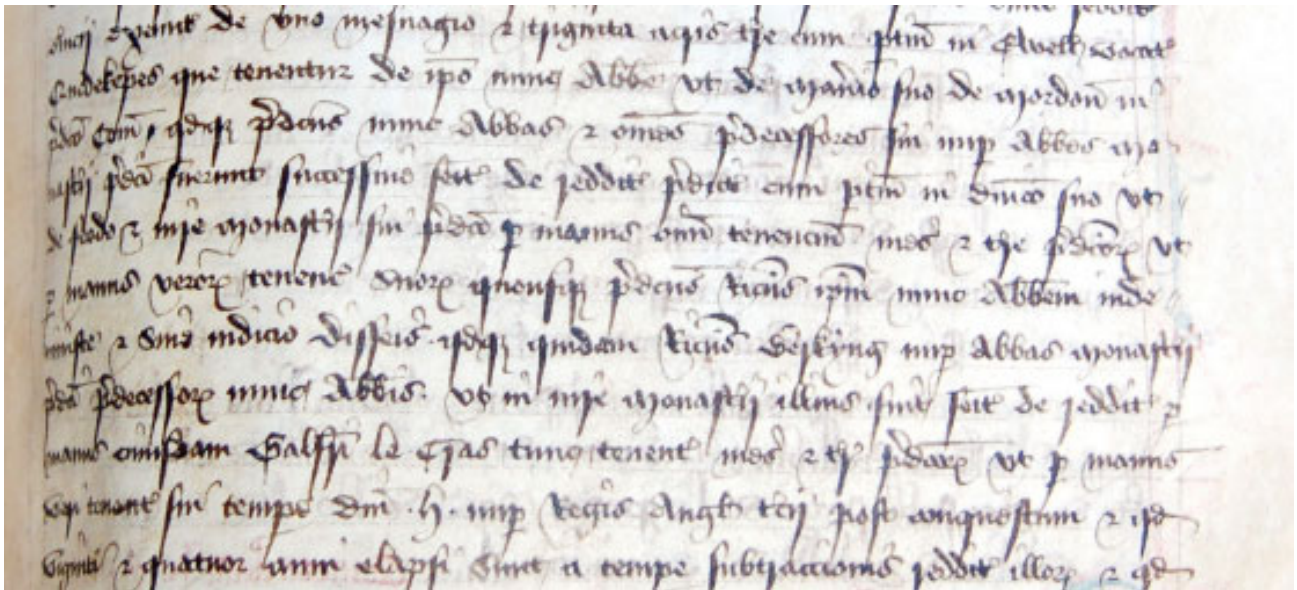 exeunt de uno mesuagio & triginta acris t're cum p'tin' in Ewell vocat'
que tenentur de ip'o nunc Abb'e ut de Man'io suo de Mordon' in
p'd'co Com' qdq p'dcus nunc Abbas & om'es p'decessores sui nup Abb'es Mo
nast'ij p'd'ci fuerunt successive seit' de reddit' p'dict' cum p'tin' in d'nico suo ut
de feodo & iure Monast'ij sui p'd'ci p manus om'i tenencium mes' & t're p'dicor' ut
p manus veror' tenenc' suor' quousq p'dcus Ric'us ip'm nunc Abb'em inde
iniuste & sine iudicio disseis' qdq quidam Ric'us Berkyng nup Abbas Monast'ij
p'd'ci p'decessor nunc Abb'is ut in iure Monast'ij illius fuit seit' de reddit' p
manus cuiusdam Galfri le Cras tunc tenent' mes' & t're p'd'cor' ut p manus
veri tenent' sui temp'e d'ni H nup Regis Angl' t'cij post conquestum & qd
viginti & quatuor anni elapsi sunt a temp'e subtraccionis reddit' illor' & qd